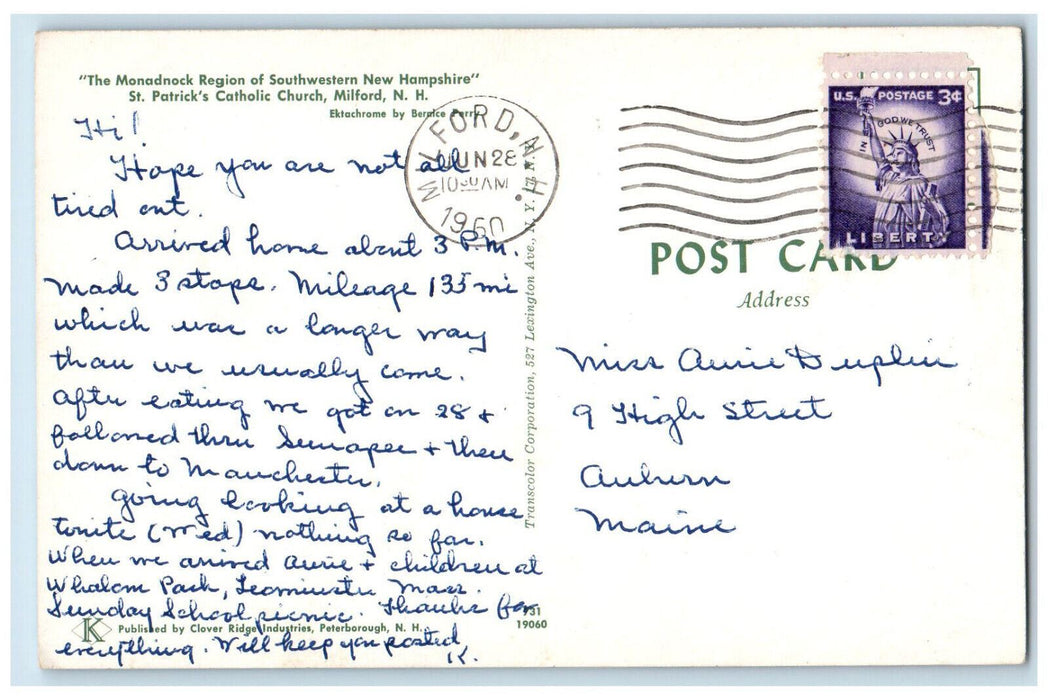 "The Monadnock Region of Southwestern New Hampshire"
St. Patrick's Catholic Church, Milford, N. H.
Ektachrome by Bernice Perry
Hi!
Hope you are not all
tired out.
Arrived home about 3 P.M.
made 3 stops. Mileage 135 mi
which was a longer way
than we usually come.
After eating we got on 28 +
followed thru Sunapee + then
down to Manchester.
Going looking at a house
tonite (Wed) nothing so far.
When we arrived Annie + children at
Whalom Park, Leominster Mass.
Sunday School picnic. Thanks for
everything. Will keep you posted
K.
K
Published by Clover Ridge Industries, Peterborough, N. H.
731
19060
Transcolor Corporation, 527 Lexington Ave., N. Y. 17, N. Y.
MILFORD, N.H.
JUN 28
1030 AM
1960
U.S. POSTAGE 3¢
IN GOD WE TRUST
LIBERTY
POST CARD
Address
Miss Annie Duplin
9 High Street
Auburn
Maine